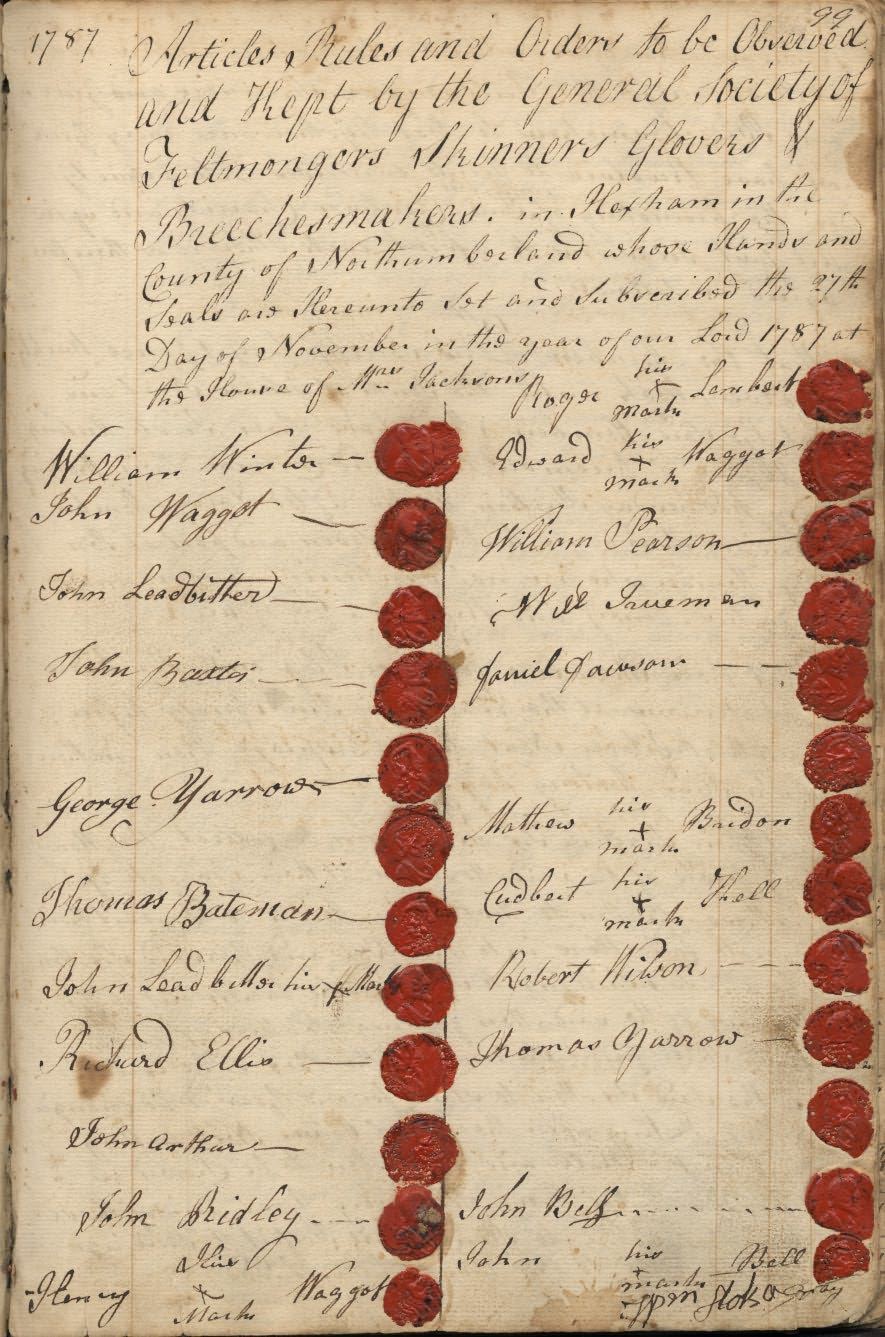 1787
99
Articles Rules and Orders to be Observed
and Kept by the General Society of
Feltmongers Skinners Glovers &
Breechesmakers. in Hexham in the
County of Northumberland whose Hands and
Seals are Hereunto Set and Subscribed the 27th
Day of November in the year of our Lord 1787 at
the House of Mrs Jacksons
William Winter
John Waggot
John Leadbitter
John Baxter
George Yarrow
Thomas Bateman
John Leadbitter his X Mark
Richard Ellis
John Arthur
John Ridley
His
Henry X Waggot
Mark
his
Roger X Lambert
mark
his
Edward + Waggot
mark
William Pearson
Will Trueman
Daniel Dawson
his
Mathew + Bridon
mark
his
Cudbert + Hell
mark
Robert Wilson
Thomas Yarrow
John Bell
his
John + Bell
mark